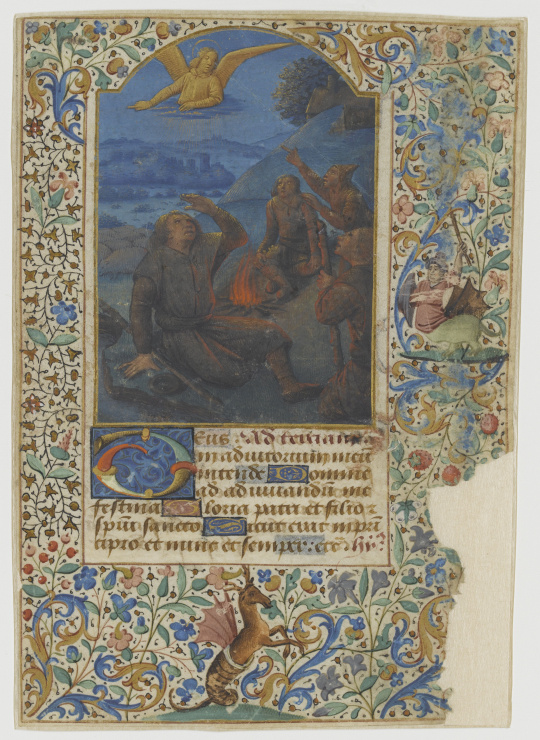 Deus Ad terciam
in adiutoriũ meũ
intende Domine
ad adiuuandũ me
festina Gloria patri et filio ⁊
spũi sancto Sicut erat in prĩ
cipio et nunc et semper